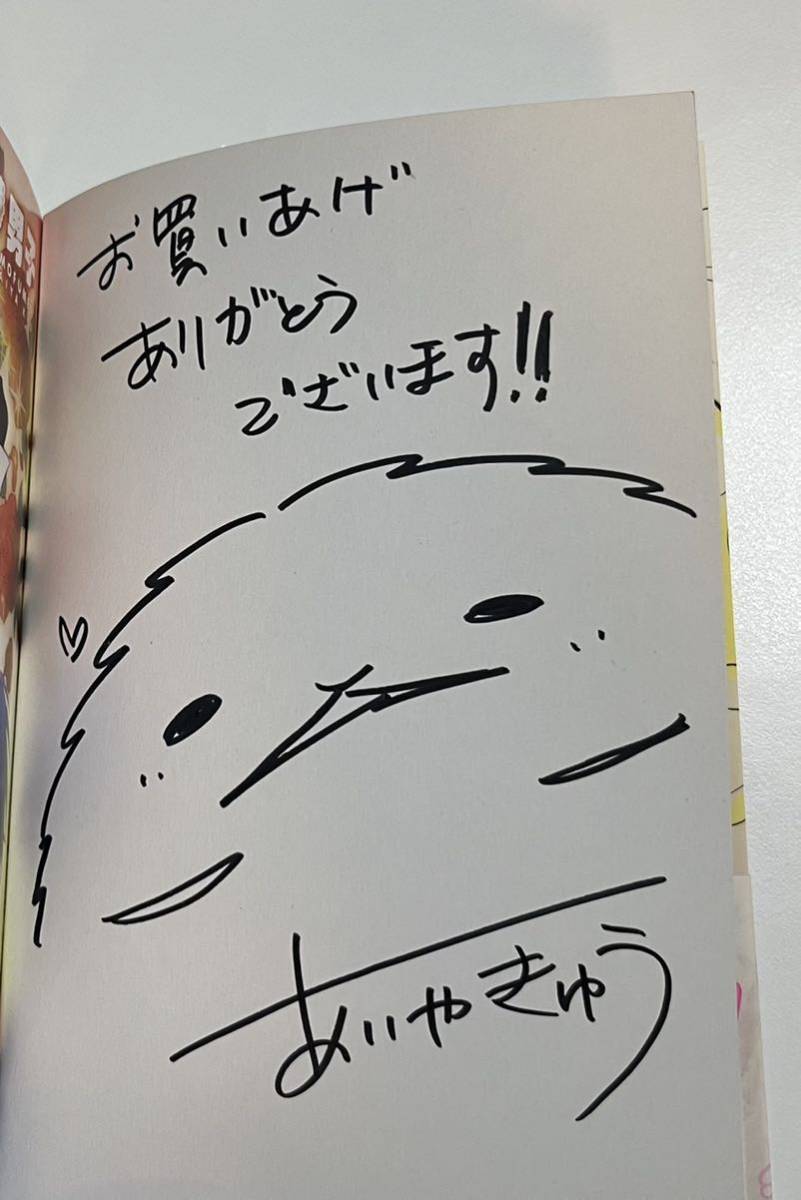 お買いあげ
ありがとう
ございます!!
あいやきゅう
男子